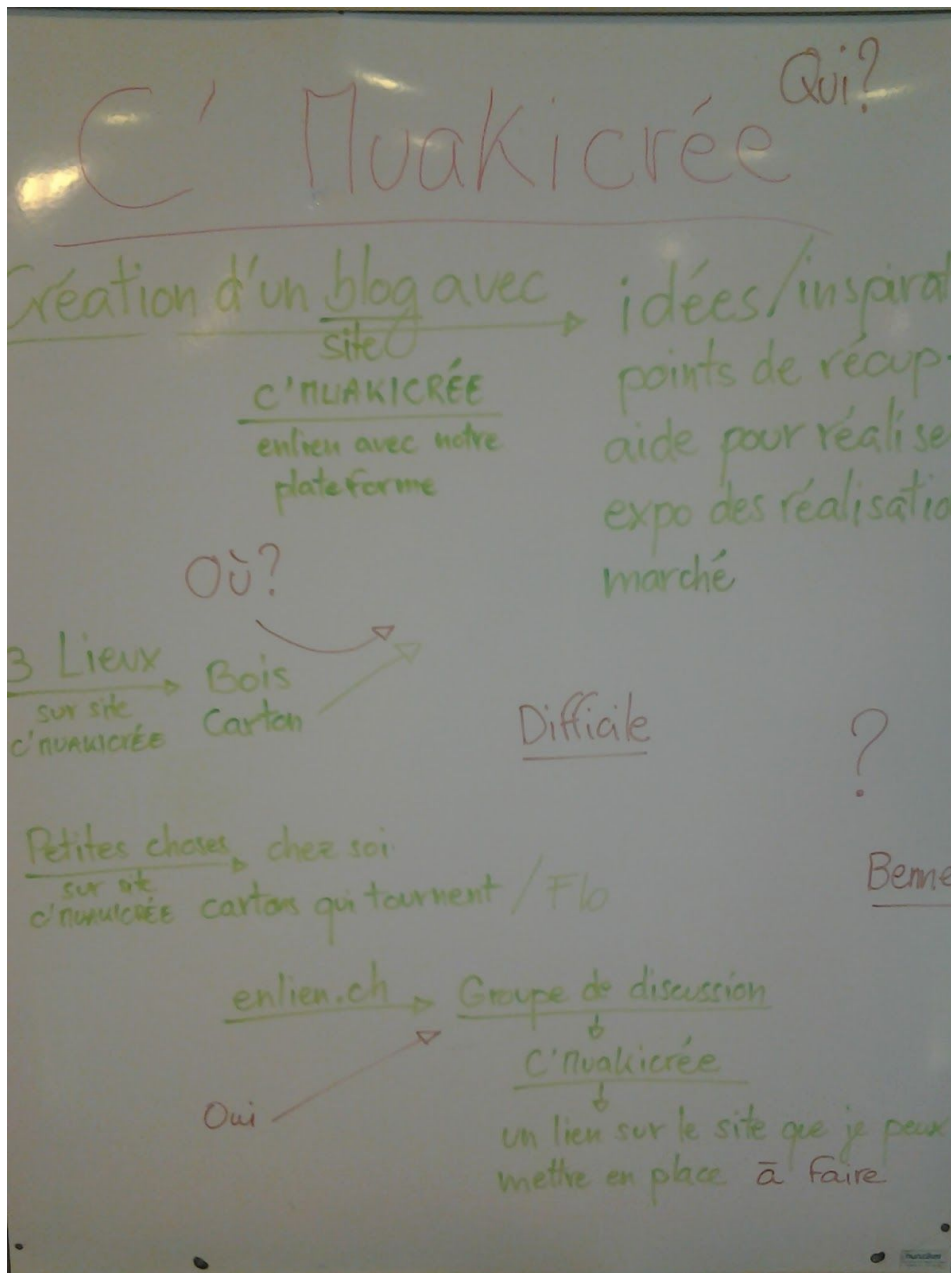 Qui?
C' Muakicrée
Création d'un blog avec
site
C'MUAKICRÉE
enlien avec notre
plateforme
idées/inspirat
points de récup.
aide pour réalise
expo des réalisatio
marché
Où?
3 Lieux
sur site
C'MUAKICRÉE
Bois
Carton
Difficile
?
Petites choses
sur site
C'MUAKICRÉE
chez soi
cartons qui tournent / Flo
Benne
enlien.ch
Groupe de discussion
C'Muakicrée
Oui
un lien sur le site que je peux
mettre en place à faire